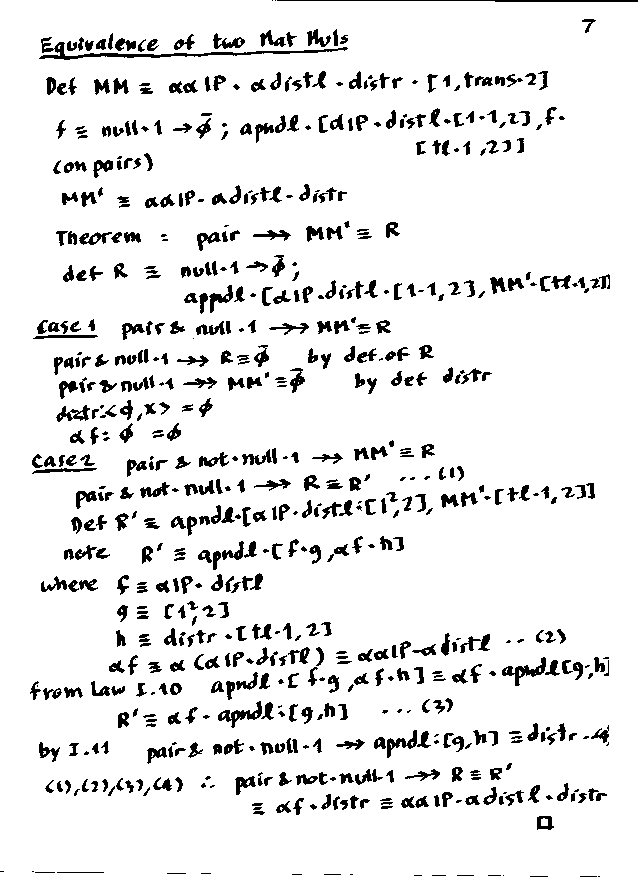 7
Equivalence of two Mat Muls
Def MM ≡ ααIP · αdistl · distr · [1,trans·2]
f ≡ null·1 → φ̄ ; apndl · [αIP · distl · [1·1,2], f·
[tl·1,2]]
(on pairs)
MM' ≡ ααIP · αdistl · distr
Theorem : pair →→ MM' ≡ R
def R ≡ null·1 → φ̄ ;
appdl · [αIP · distl · [1·1,2], MM'·[tl·1,2]]
Case 1 pair & null·1 →→ MM' ≡ R
pair & null·1 →→ R ≡ φ̄ by def. of R
pair & null·1 →→ MM' ≡ φ̄ by def distr
distr:<φ,x> = φ
αf: φ = φ
Case 2 pair & not·null·1 →→ MM' ≡ R
pair & not·null·1 →→ R ≡ R' ... (1)
Def R' ≡ apndl·[αIP·distl:[1²,2], MM'·[tl·1,2]]
note R' ≡ apndl·[f·g, αf·h]
where f ≡ αIP · distl
g ≡ [1²,2]
h ≡ distr · [tl·1,2]
αf ≡ α(αIP·distl) ≡ ααIP·αdistl ·· (2)
from Law I.10 apndl·[f·g, αf·h] ≡ αf·apndl[g,h]
R' ≡ αf·apndl:[g,h] ... (3)
by I.11 pair & not·null·1 →→ apndl:[g,h] ≡ distr ··(4
(1),(2),(3),(4) ∴ pair & not·null·1 →→ R ≡ R'
≡ αf·distr ≡ ααIP·αdistl·distr